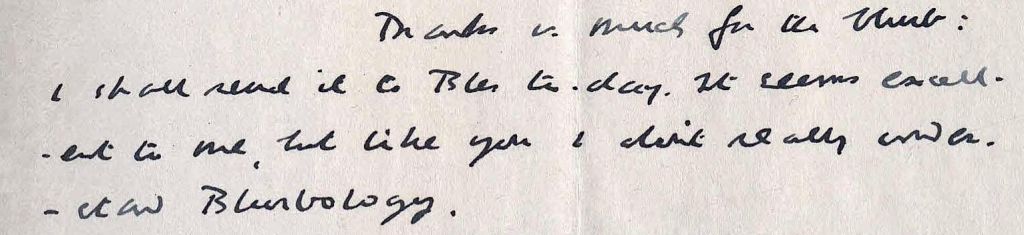 Thanks v. much for the blurb:
I shall send it to Bles to-day. It seems excell-
-ent to me, but like you I don't really under-
-stand Blurbology.